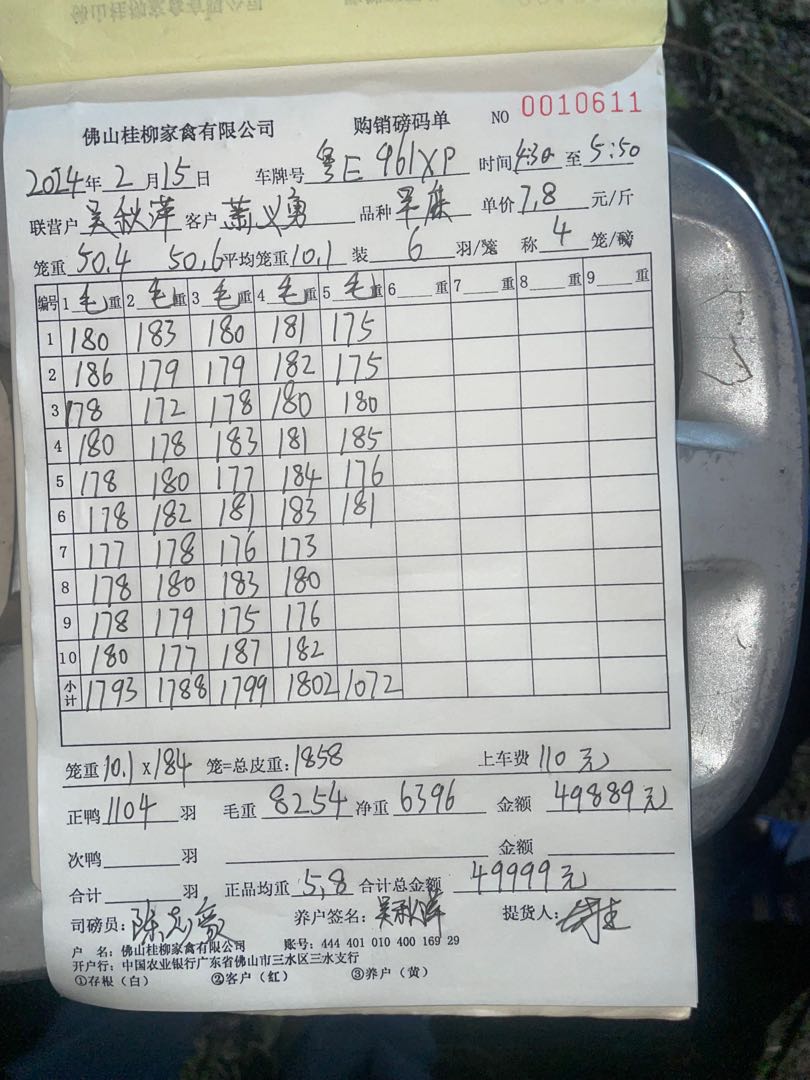 佛山桂柳家禽有限公司 购销磅码单 NO 0010611
2024年2月15日 车牌号 粤E 961XP 时间 4:30 至 5:50
联营户 吴秋萍 客户 萧义勇 品种 单价 7,8 元/斤
笼重 50.4 50,6 平均笼重 10,1 装 6 羽/笼 称 4 笼/磅
编号 1 毛 重 2 毛 重 3 毛 重 4 毛 重 5 毛 重 6 重 7 重 8 重 9 重
1 180 183 180 181 175
2 186 179 179 182 175
3 178 172 178 180 180
4 180 178 183 181 185
5 178 180 177 184 176
6 178 182 181 183 181
7 177 178 176 173
8 178 180 183 180
9 178 179 175 176
10 180 177 187 182
小计 1793 1788 1799 1802 1072
笼重 10.1 x 184 笼=总皮重: 1858 上车费 110元
正鸭 1104 羽 毛重 8254 净重 6396 金额 49889元
次鸭 羽 金额
合计 羽 正品均重 5,8 合计总金额 49999元
司磅员: 陈志豪 养户签名: 吴秋萍 提货人:
户 名: 佛山桂柳家禽有限公司 账号: 444 401 010 400 169 29
开户行: 中国农业银行广东省佛山市三水区三水支行
①存根(白) ②客户(红) ③养户(黄)